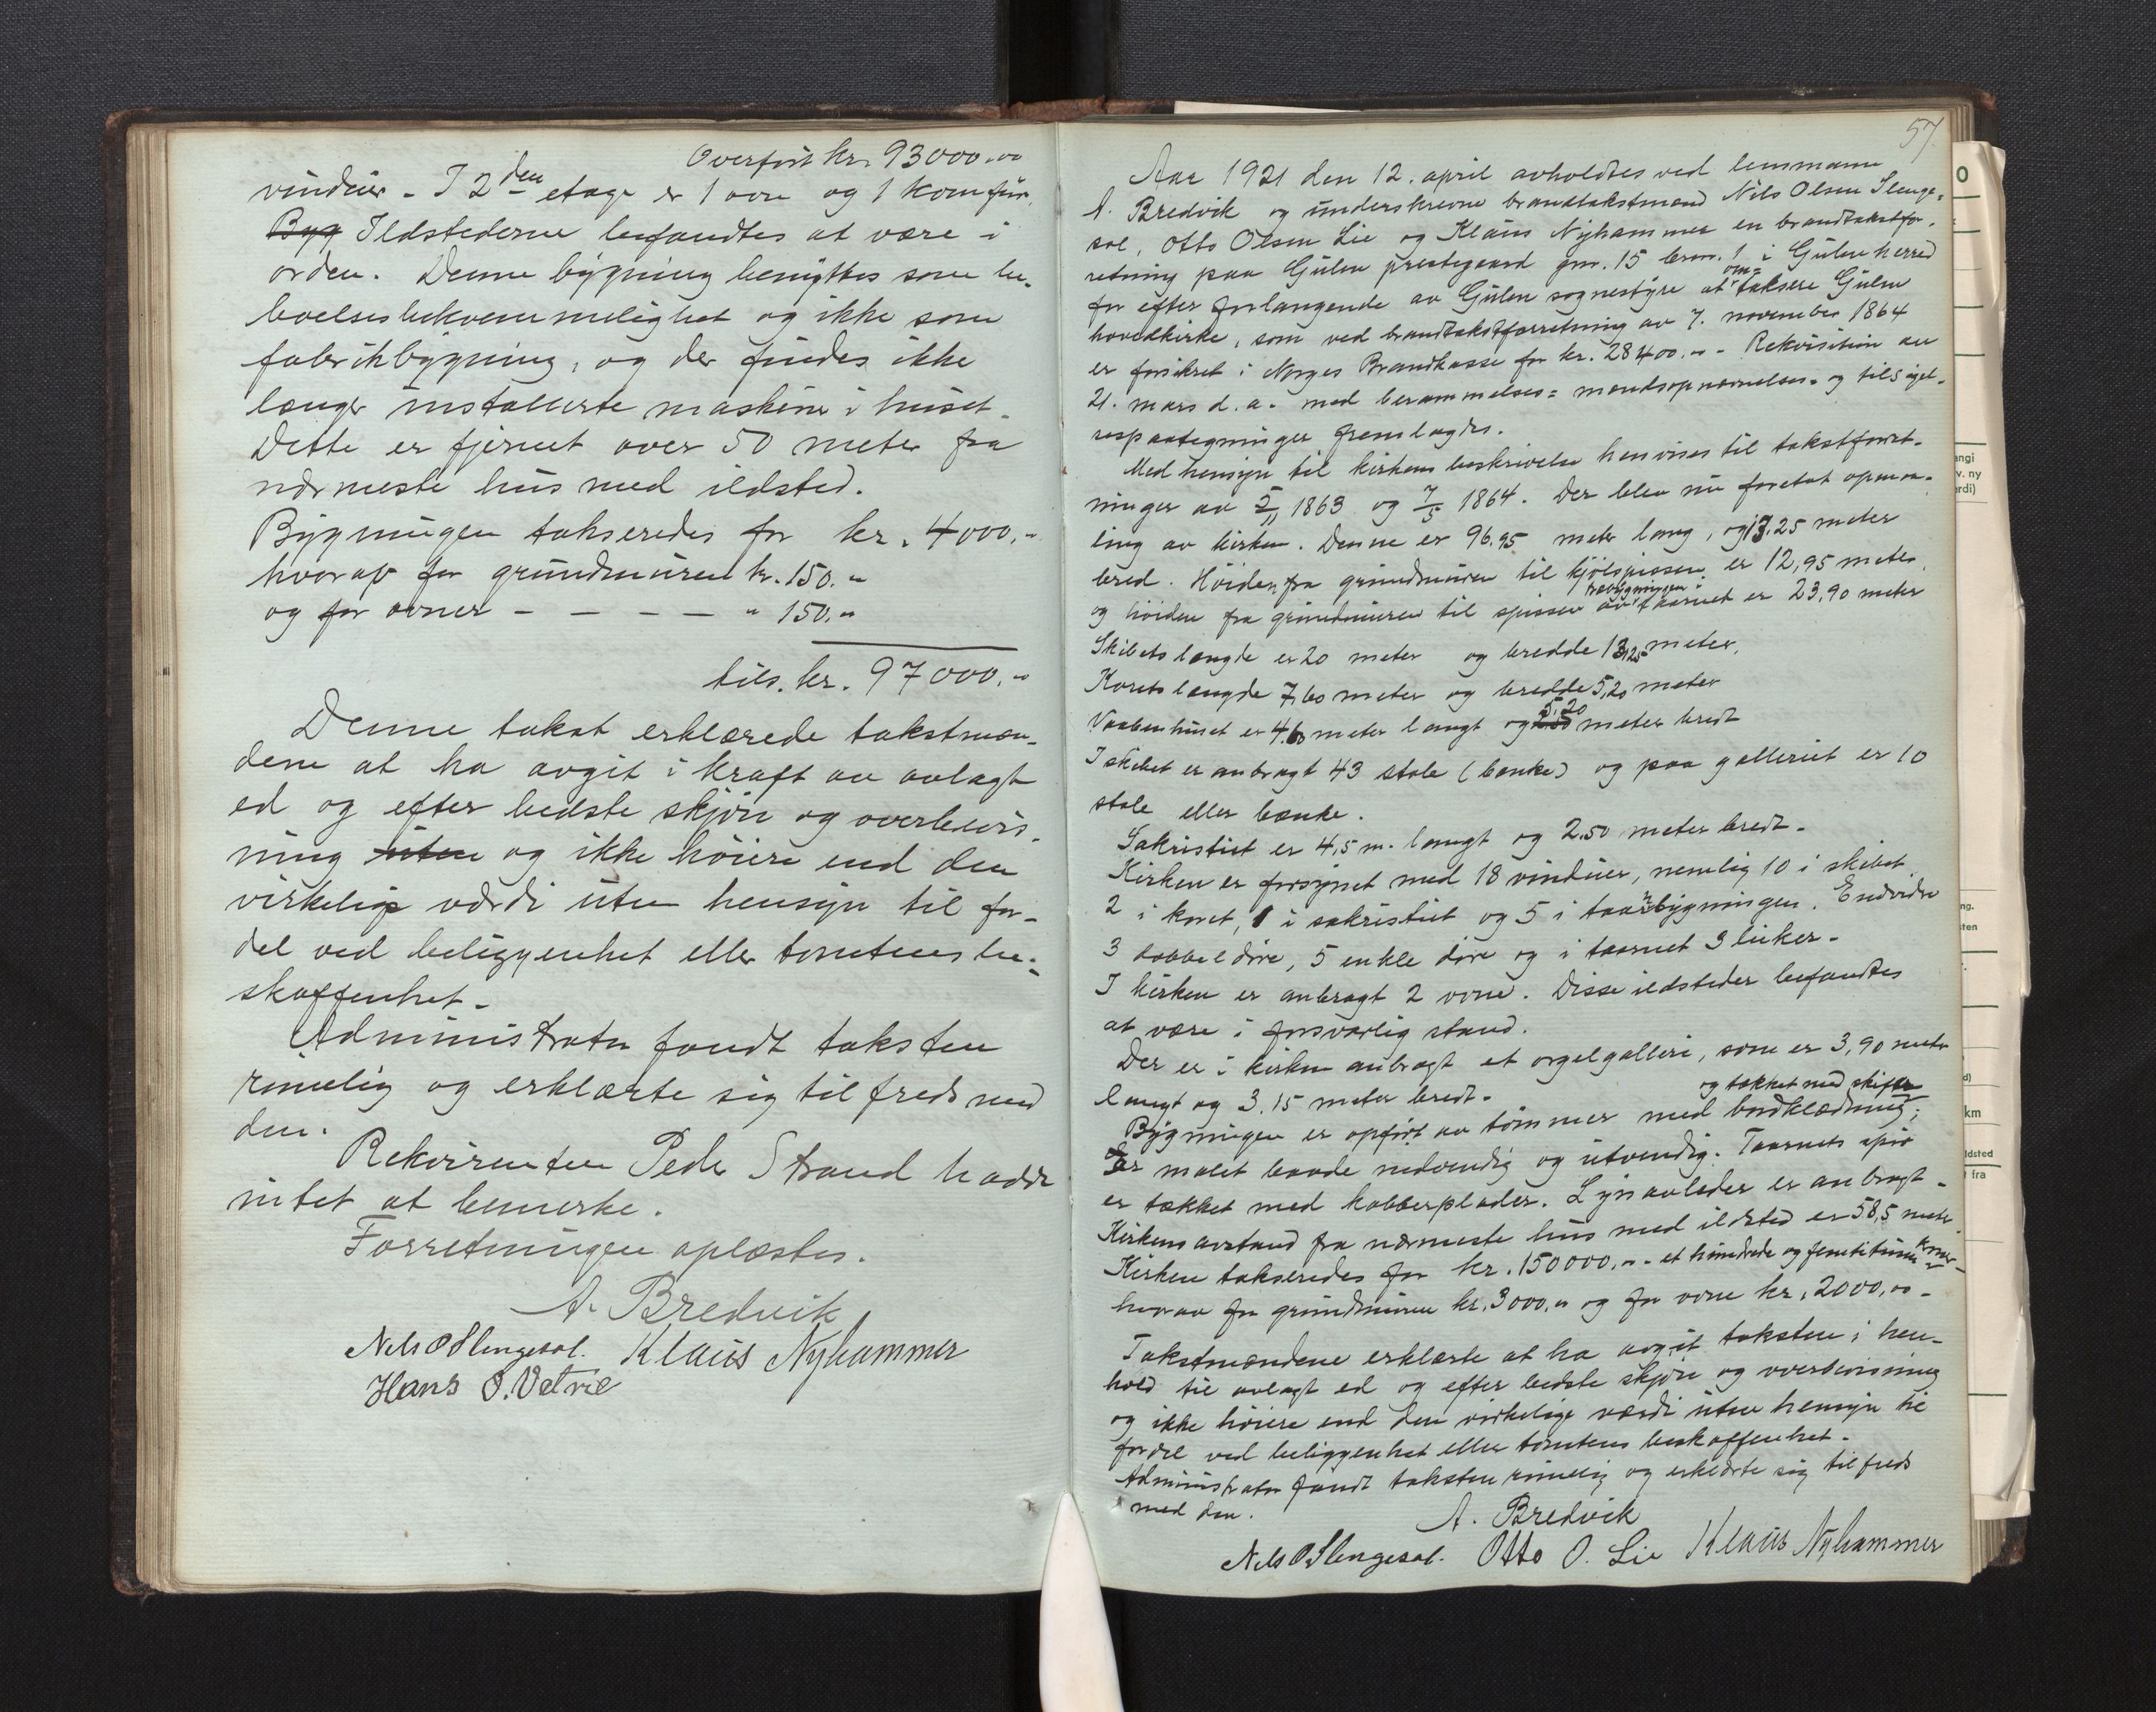 Overført kr. 93000.00
vinduer. I 2den etage er 1 ovn og 1 komfür.
Byg Ildstederne befandtes at være i
orden. Denne bygning benyttes som be-
boelsesbekvemmelighet og ikke som
fabrikbygning, og der findes ikke
længer installerte maskiner i huset.
Dette er fjernet over 50 meter fra
nærmeste hus med ildsted.
Bygningen takseredes for kr. 4000.-
hvorav for grundmuren kr. 150.-
og for ovner - - - - " 150.-
tils. kr. 97000.-
Denne takst erklærede takstmæn-
dene at ha avgit i kraft av avlagt
ed og efter bedste skjøn og overbevis-
ning uten og ikke høiere end den
virkelige værdi uten hensyn til for-
del ved beliggenhet eller tomtens be-
skaffenhet.
Administrator fandt taksten
rimelig og erklærte sig tilfreds med
den.
Rekvirenten Peder Strand hadde
intet at bemerke.
Forretningen oplæstes.
A. Bredvik
Nels O Slengesol. Klaus Nyhammer
Hans O. Vetvie
57.
Aar 1921 den 12. april avholdtes ved lensmann
A. Bredvik og underskrevne brandtakstmænd Nils Olsen Slenge-
sol, Otto Olsen Lie og Klaus Nyhammer en brandtakstfor-
retning paa Gulen prestegaard gnr. 15 brnr. 1 i Gulen herred
for efter forlangende av Gulen sognestyre at omtaksere Gulen
hovedkirke, som ved brandtakstforretning av 7. november 1864
er forsikret i Norges Brandkasse for kr. 28400.- - Rekvisition av
21. mars d.a. med berammelses- mændsopnævnelses- og tilsigel-
sespaategninger fremlagdes.
Med hensyn til kirkens beskrivelse henvises til takstforret-
ninger av 5/11 1863 og 7/5 1864. Der blev nu foretat opmaa-
ling av kirken. Denne er 96.95 meter lang, og 13.25 meter
bred. Høiden fra grundmuren til kjølspissen er 12,95 meter,
og høiden fra grundmuren til spissen av træbygningen i taarnet er 23,90 meter
Skibets længde er 20 meter og bredde 13,25 meter.
Korets længde 7,60 meter og bredde 5,20 meter
Vaabenhuset er 4.60 meter langt og 5,20 meter bredt
I skibet er anbragt 43 stole (bænke) og paa galleriet er 10
stole eller bænke.
Sakristiet er 4,5 m. langt og 2.50 meter bredt.
Kirken er forsynet med 18 vinduer, nemlig 10 i skibet,
2 i koret, 1 i sakristiet og 5 i taarnbygningen. Endvidere
3 dobbeldøre, 5 enkle døre og i taarnet 3 luker.
I kirken er anbragt 2 ovne. Disse ildsteder befandtes
at være i forsvarlig stand.
Der er i kirken anbragt et orgelgalleri, som er 3,90 meter
langt og 3.15 meter bredt.
Bygningen er opført av tømmer med bordklædning, og tækket med skifer
er malet baade indvendig og utvendig. Taarnets spir
er tækket med kobberplader. Lynavleder er anbragt.
Kirkens avstand fra nærmeste hus med ildsted er 58,5 meter.
Kirken takseredes for kr. 150000.- - et hundrede og femtitusen kroner -
hvorav for grundmuren kr. 3000.- og for ovne kr. 2000.00.
Takstmændene erklærte at ha avgit taksten i hen-
hold til avlagt ed og efter bedste skjøn og overbevisning
og ikke høiere end den virkelige værdi uten hensyn til
fordel ved beliggenhet eller tomtens beskaffenhet.
Administrator fandt taksten rimelig og erklærte sig tilfreds
med den.
A. Bredvik
Nels O Slengesol. Otto O. Lie Klaus Nyhammer